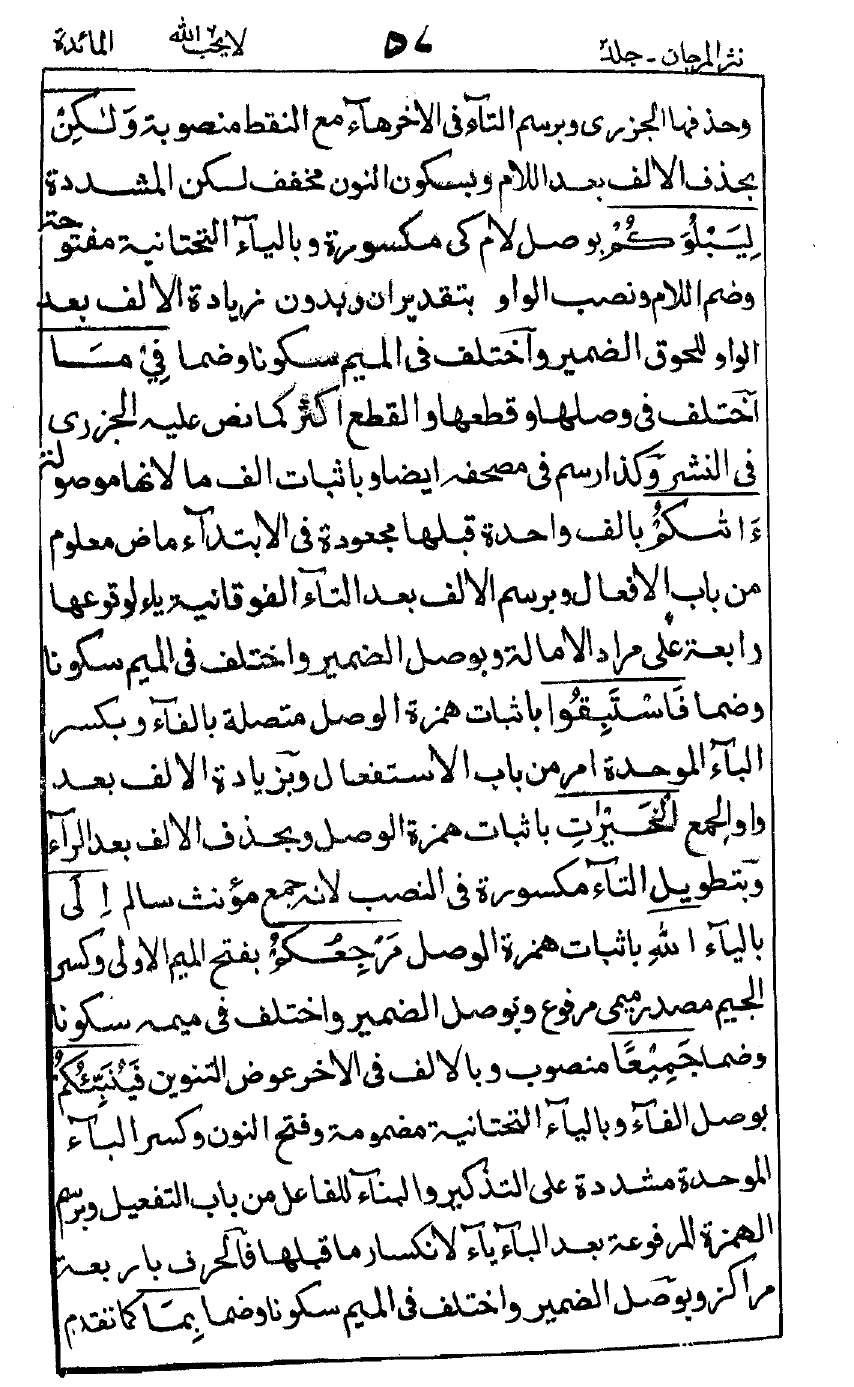 نثر المرجان - جلد ۲ ۵۷ لا يحب الله المائدة
وحذفها الجزرى وبرسم التآء فى الاخر هآء مع النقط منصوبة وَلٰكِنْ
بحذف الالف بعد اللام وبسكون النون مخفف لكن المشددة
لِيَبْلُوَكُمْ بوصل لام كى مكسورة وباليآء التحتانية مفتوحة
وضم اللام ونصب الواو بتقدير ان وبدون زيادة الالف بعد
الواو للحوق الضمير واختلف فى الميم سكونا وضما فِيْ مَا
اختلف فى وصلها وقطعها والقطع اكثر كما نص عليه الجزرى
فى النشر وكذا رسم فى مصحفه ايضا وباثبات الف ما لانها موصولة
ءَاتٰىكُمْ بالف واحدة قبلها مجعودة فى الابتدآء ماض معلوم
من باب الافعال وبرسم الالف بعد التآء الفوقانية ياء لوقوعها
رابعة على مراد الامالة وبوصل الضمير واختلف فى الميم سكونا
وضما فَاسْتَبِقُوا باثبات همزة الوصل متصلة بالفآء وبكسر
البآء الموحدة امر من باب الاستفعال وبزيادة الالف بعد
واو الجمع الْخَيْرٰتِ باثبات همزة الوصل وبحذف الالف بعد الرآء
وبتطويل التآء مكسورة فى النصب لانه جمع مؤنث سالم اِلَى
باليآء اللهِ باثبات همزة الوصل مَرْجِعُكُمْ بفتح الميم الاولى وكسر
الجيم مصدر ميمى مرفوع وبوصل الضمير واختلف فى ميمه سكونا
وضما جَمِيْعًا منصوب وبالالف فى الاخر عوض التنوين فَيُنَبِّئُكُمْ
بوصل الفآء وباليآء التحتانية مضمومة وفتح النون وكسر البآء
الموحدة مشددة على التذكير والبنآء للفاعل من باب التفعيل وبرسم
الهمزة المرفوعة بعد البآء يآء لانكسار ما قبلها فالحرف باربعة
مراكز وبوصل الضمير واختلف فى الميم سكونا وضما بِمَا كما تقدم